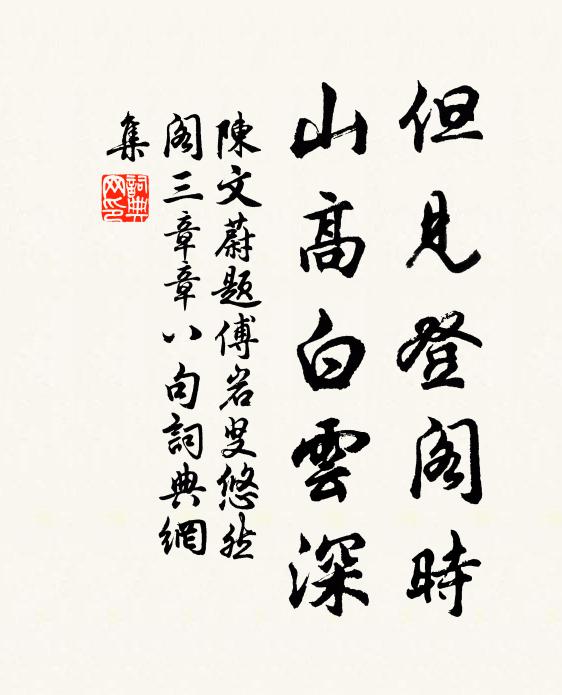 但見登阁時
山高白雲深
陳文蔚題傅岩叟悠然
阁三章章八句詞典網
集
詞典
网印